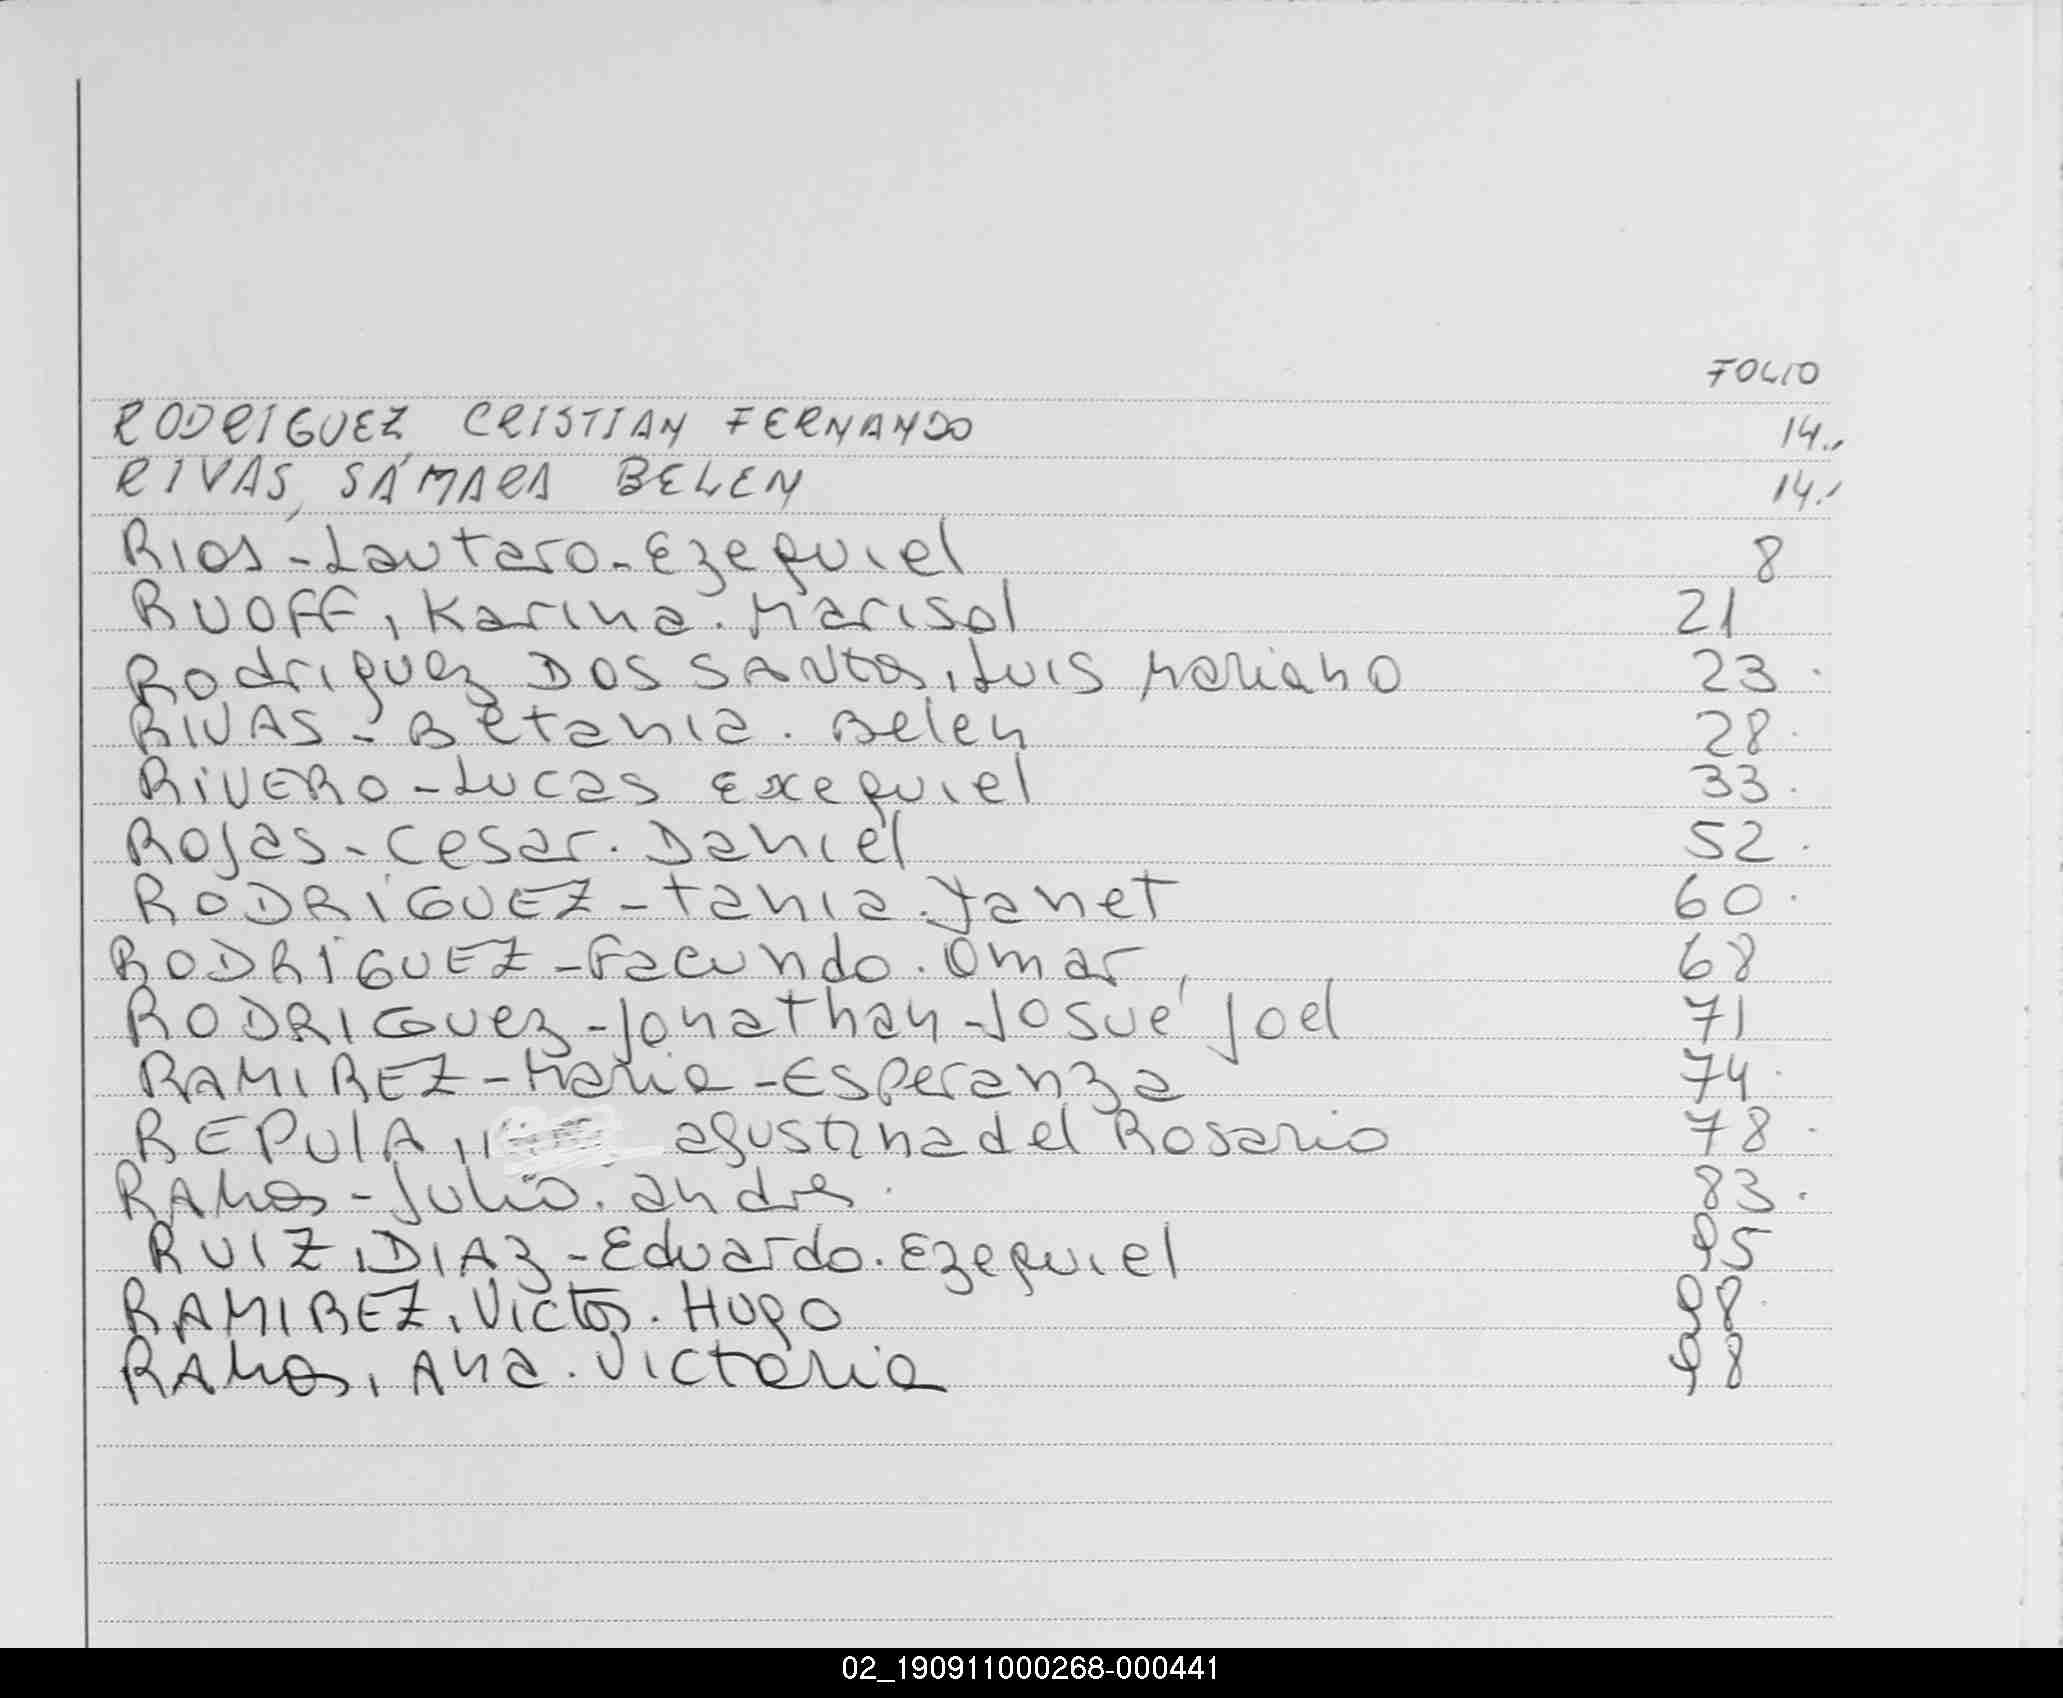 FOLIO
RODRIGUEZ, CRISTIAN FERNANDO 14.,
RIVAS, SÁMARA BELEN 14.,
RIOS - Lautaro - Ezequiel 8
RUOFF, Karina. Marisol 21
Rodriguez DOS SANtos, Luis Mariano 23.
RIVAS - Betania. Belen 28.
RIVERO - Lucas Exequiel 33.
Rojas - Cesar. Daniel 52.
RODRIGUEZ - tania. Yanet 60.
RODRIGUEZ - Facundo. Omar 68
RODRIGuez - Jonathan - Josué Joel 71
RAMIREZ - Maria - Esperanza 74.
REPULA, agustina del Rosario 78.
RAMos - Julio. andres. 83.
RUIZ, DIAz - Eduardo. Ezequiel 95
RAMIREZ, Victor. Hugo 98.
RAMos, Ana. Victoria 98
02_190911000268-000441